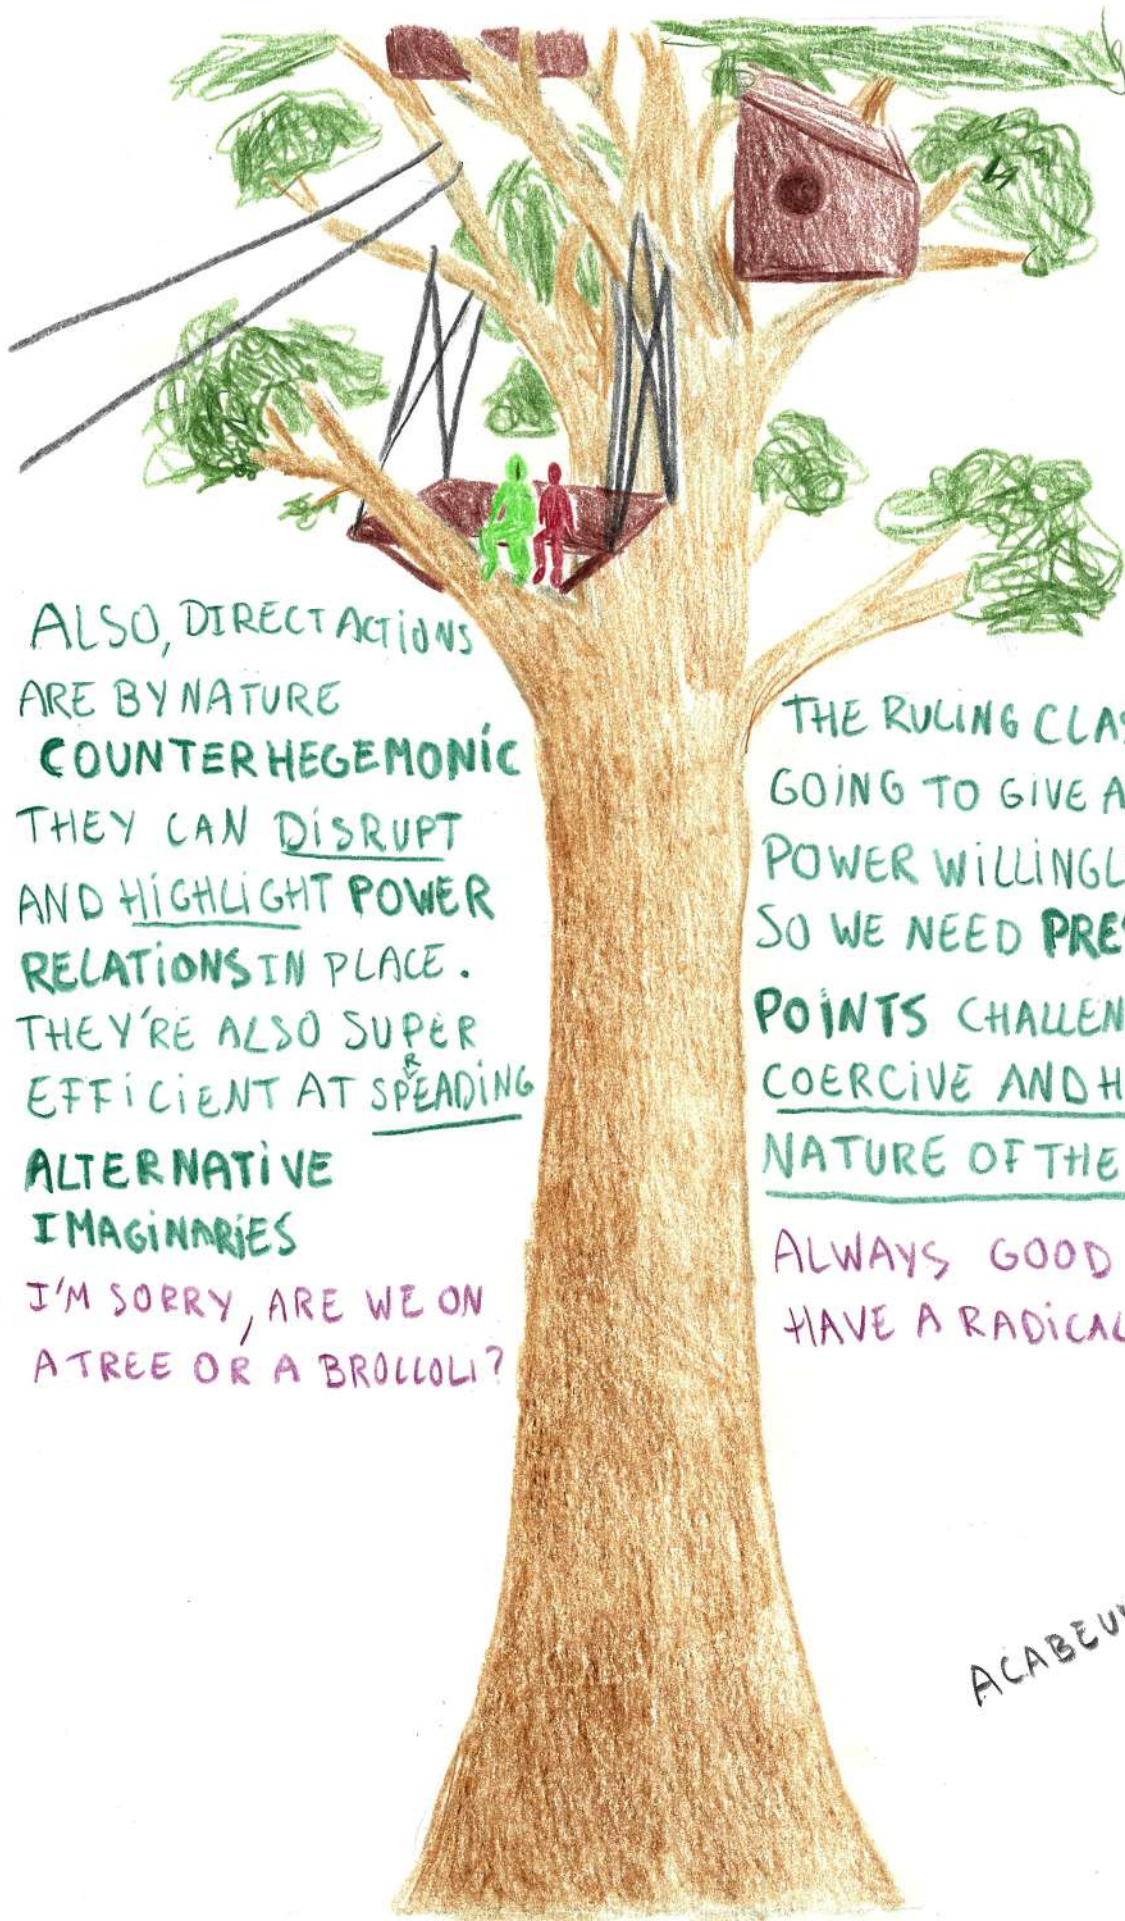 ALSO, DIRECT ACTIONS
ARE BY NATURE
COUNTERHEGEMONIC
THEY CAN DISRUPT
AND HIGHLIGHT POWER
RELATIONS IN PLACE.
THEY'RE ALSO SUPER
EFFICIENT AT SPREADING
ALTERNATIVE
IMAGINARIES
I'M SORRY, ARE WE ON
A TREE OR A BROCCOLI?
THE RULING CLAS
GOING TO GIVE A
POWER WILLINGL
SO WE NEED PRES
POINTS CHALLEN
COERCIVE AND H
NATURE OF THE
ALWAYS GOOD
HAVE A RADICAL
ACABEU